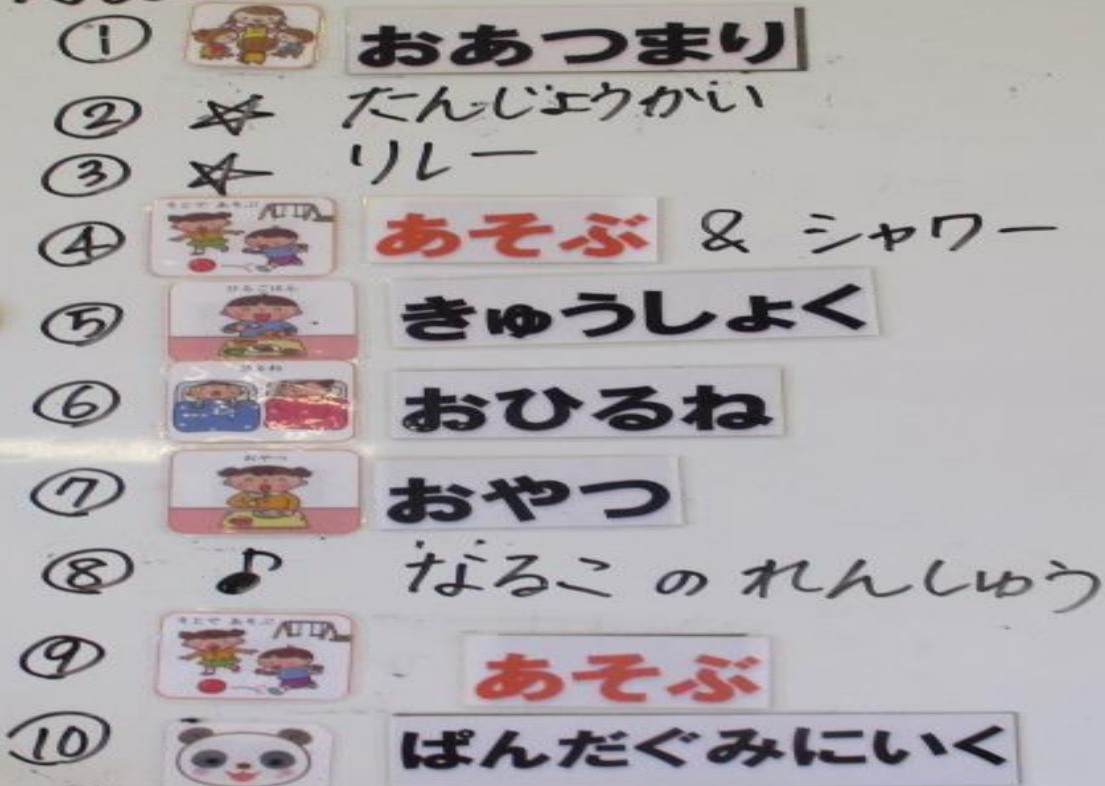 ① おあつまり
② ☆ たんじょうかい
③ ☆ リレー
そとで あそぶ
④ あそぶ & シャワー
ひるごはん
⑤ きゅうしょく
ひるね
⑥ おひるね
おやつ
⑦ おやつ
⑧ ♪ なるこ の れんしゅう
そとで あそぶ
⑨ あそぶ
⑩ ぱんだぐみにいく